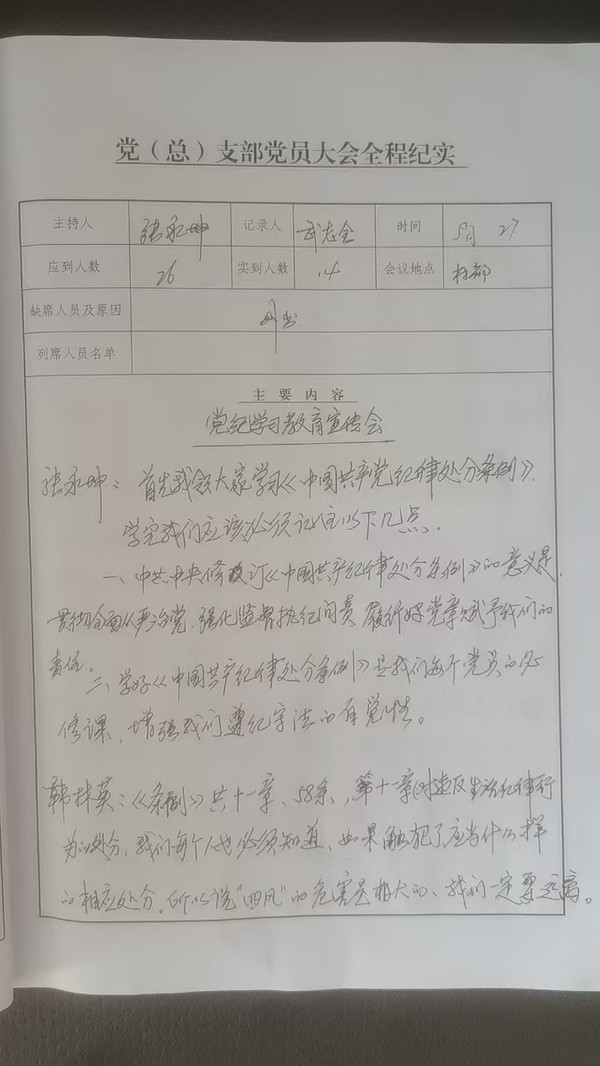 党（总）支部党员大会全程纪实
主持人 张永坤 记录人 武志全 时间 5月 27
应到人数 26 实到人数 14 会议地点 村部
缺席人员及原因 外出
列席人员名单
主 要 内 容
党纪学习教育宣传会
张永坤：首先我领大家学习《中国共产党纪律处分条例》，
学完我们应该必须记住以下几点.
一、中共中央修改订《中国共产纪律处分条例》的意义是，
贯彻全面从严治党，强化监督执纪问责，履行好党章赋予我们的
责任。
二、学好《中国共产纪律处分条例》是我们每个党员的必
修课，增强我们遵纪守法的自觉性。
韩林英：《条例》共十一章、58条，第十一章（对违反生活纪律行
为的处分，我们每个人也必须知道，如果触犯了应当什么样
的相应处分，所以说"四风"的危害是极大的、我们一定要远离。